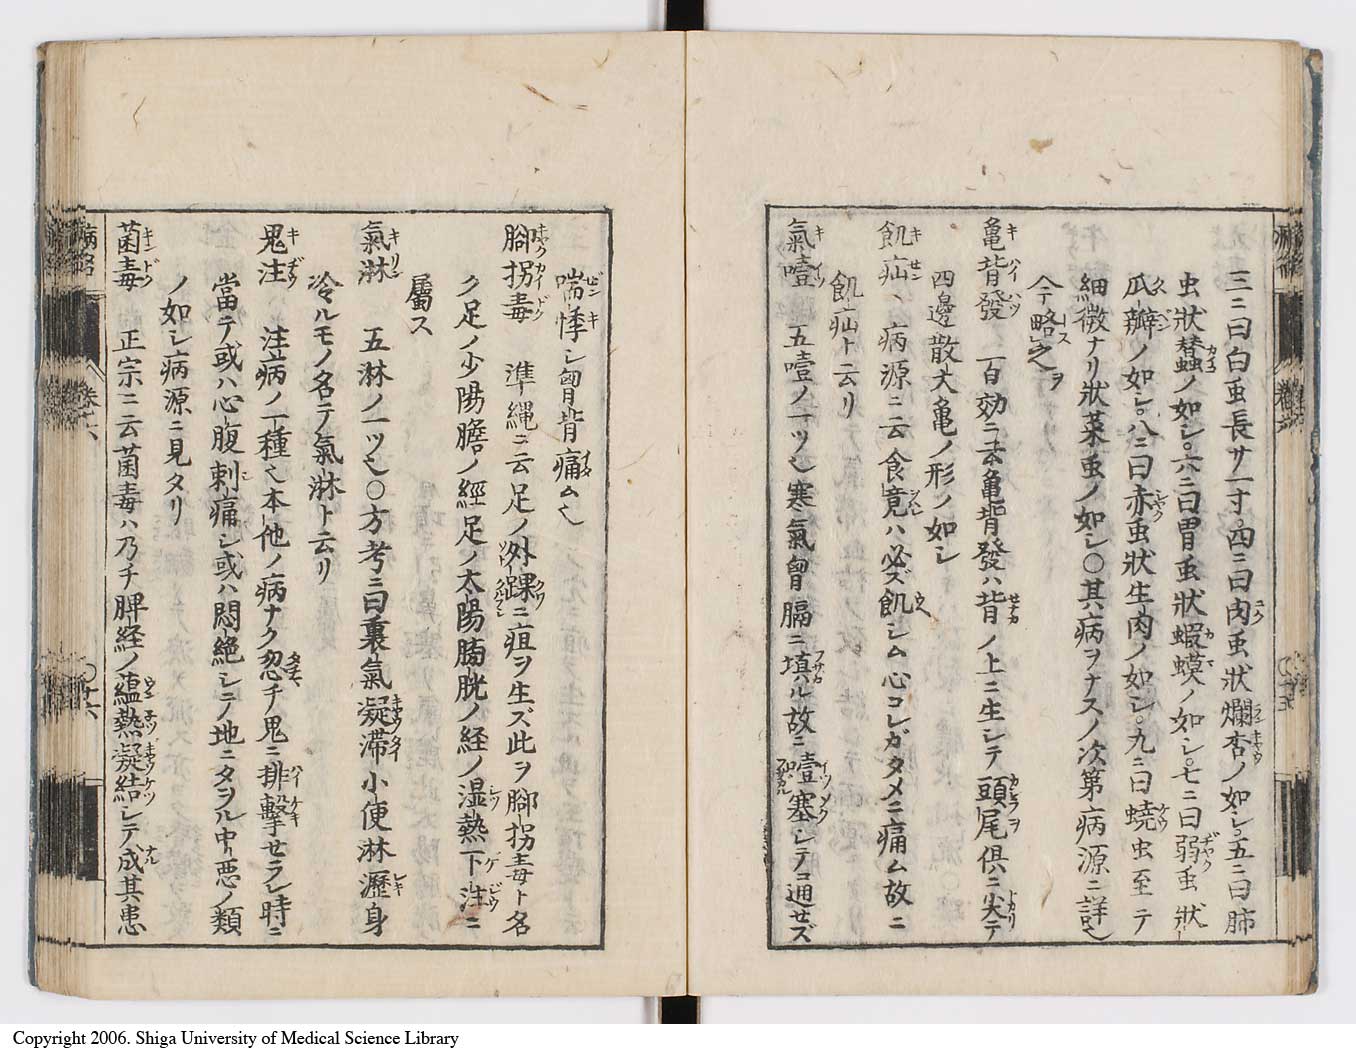 三ニ曰白虫長サ一寸四ニ曰肉虫状爛杏ノ如シ五ニ曰肺
虫狀蠶ノ如シ。六ニ曰胃虫狀蝦蟆ノ如シ。七ニ曰弱虫狀
瓜瓣ノ如シ。八ニ曰赤虫狀生肉ノ如シ。九ニ曰蟯虫至テ
細微ナリ狀菜虫ノ如シ〇其病ヲナスノ次第病源ニ詳也
今略之ヲ
亀背發 百効ニ云亀背發ハ背ノ上ニ生シテ頭尾倶ニ尖テ
四邊散大亀ノ形ノ如シ
飢疝 病源ニ云食竟ハ必ズ飢シム心コレガタメニ痛ム故ニ
飢疝ト云リ
氣噎 五噎ノ一ツ也寒氣胷膈ニ填ル故ニ噎塞シテ通せズ
喘悸シ胷背痛ム也
脚拐毒 準縄ニ云足ノ外踝ニ疽ヲ生ズ此ヲ脚拐毒ト名
ク足ノ少陽膽ノ經足ノ太陽膀胱ノ経ノ湿熱下注ニ
屬ス
氣淋 五淋ノ一ツ也〇方考ニ曰裏氣凝滞小便淋瀝身
冷ルモノ名テ氣淋ト云リ
鬼注 注病ノ一種也本他ノ病ナク忽チ鬼ニ排擊せラレ時ニ
當テ或ハ心腹刺痛シ或ハ悶絶シ地ニタヲル中悪ノ類
ノ如シ病源ニ見タリ
菌毒 正宗ニ云菌毒ハ乃チ脾経ノ蘊熱凝結シテ成其患
病名
巻十六
〇十六
Copyright 2006. Shiga University of Medical Science Library